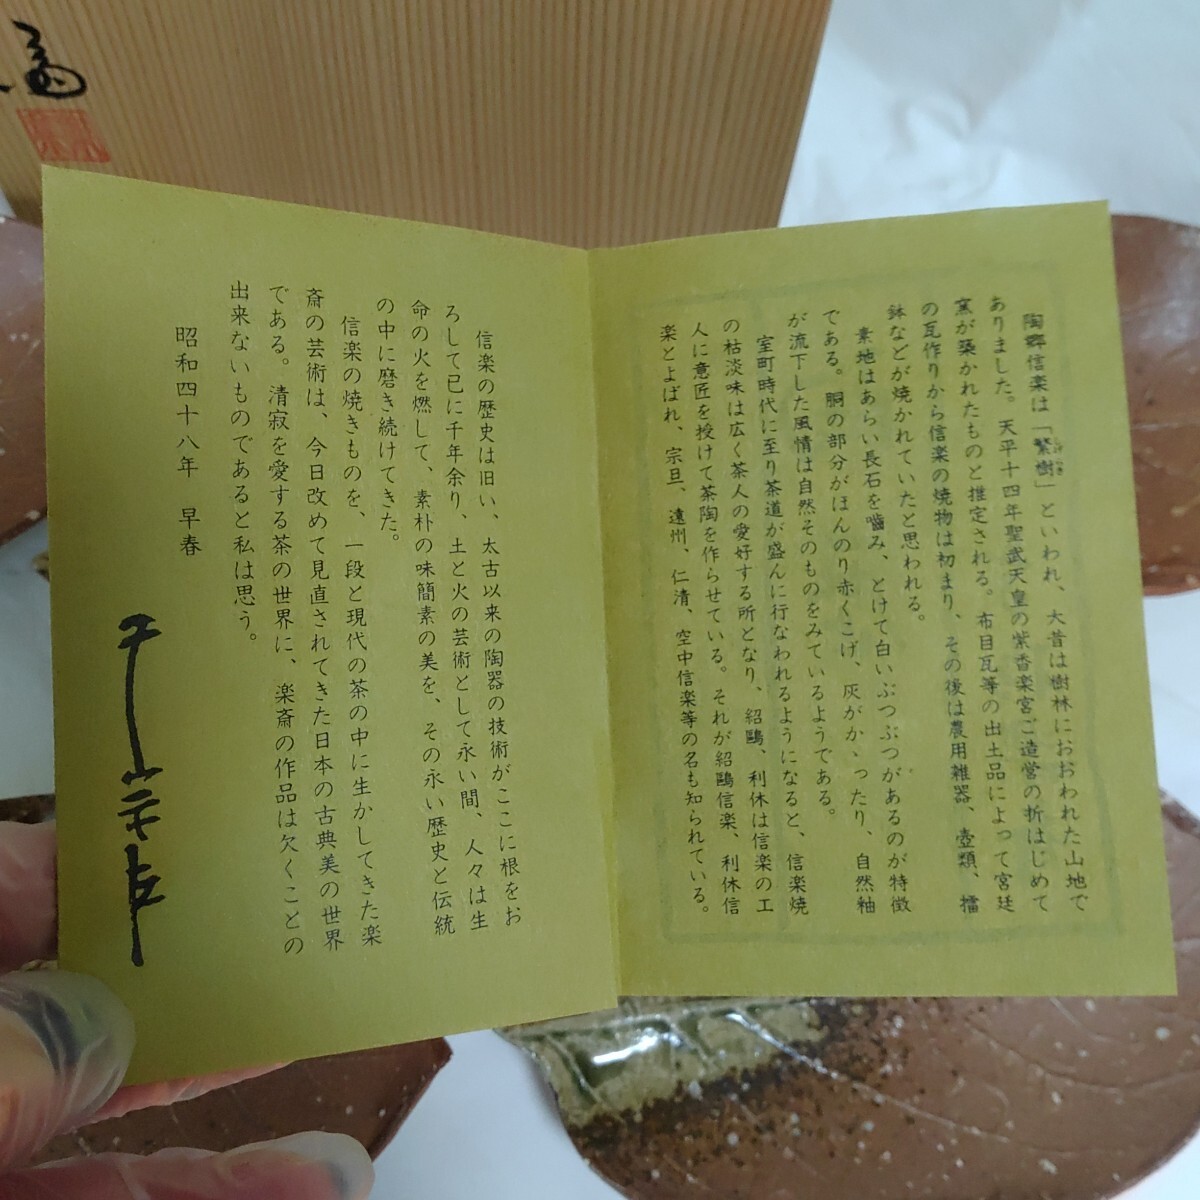 陶郷信楽は「繁樹」といわれ、大昔は樹林におおわれた山地で
ありました。天平十四年聖武天皇の紫香楽宮ご造営の折はじめて
窯が築かれたものと推定される。布目瓦等の出土品によって宮廷
の瓦作りから信楽の焼物は初まり、その後は農用雑器、壺類、擂
鉢などが焼かれていたと思われる。
素地はあらい長石を嚙み、とけて白いぶつぶつがあるのが特徴
である。胴の部分がほんのり赤くこげ、灰がかゝったり、自然釉
が流下した風情は自然そのものをみているようである。
室町時代に至り茶道が盛んに行なわれるようになると、信楽焼
の枯淡味は広く茶人の愛好する所となり、紹鷗、利休は信楽の工
人に意匠を授けて茶陶を作らせている。それが紹鷗信楽、利休信
楽とよばれ、宗旦、遠州、仁清、空中信楽等の名も知られている。
信楽の歴史は旧い、太古以来の陶器の技術がここに根をお
ろして已に千年余り、土と火の芸術として永い間、人々は生
命の火を燃して、素朴の味簡素の美を、その永い歴史と伝統
の中に磨き続けてきた。
信楽の焼きものを、一段と現代の茶の中に生かしてきた楽
斎の芸術は、今日改めて見直されてきた日本の古典美の世界
である。清寂を愛する茶の世界に、楽斎の作品は欠くことの
出来ないものであると私は思う。
昭和四十八年 早春